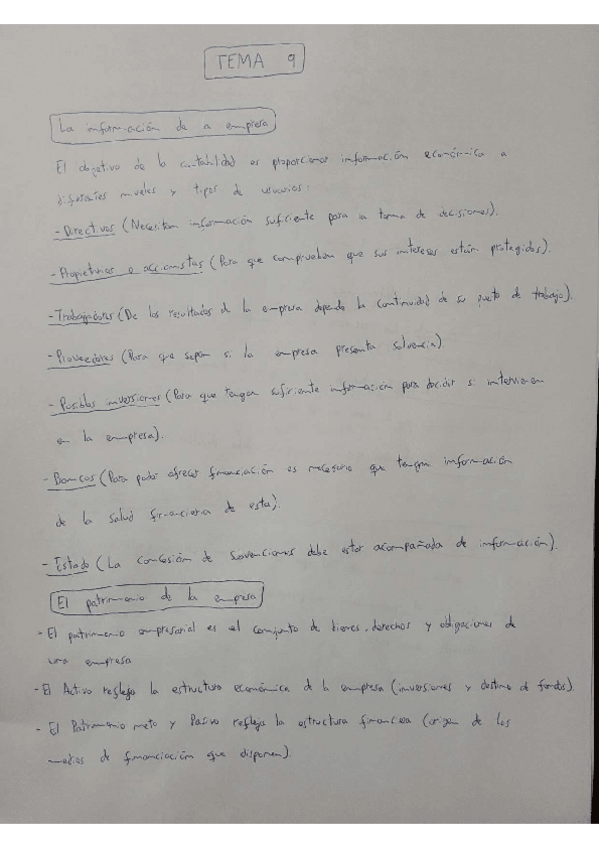 TEMA 9
La información de a empresa
El objetivo de la contabilidad es proporcionar información económica a
diferentes niveles y tipos de usuarios:
- Directivos (Necesitan información suficiente para la toma de decisiones).
- Propietarios o accionistas (Para que comprueban que sus intereses están protegidos).
- Trabajadores (De los resultados de la empresa depende la continuidad de su puesto de trabajo).
- Proveedores (Para que sepan si la empresa presenta solvencia).
- Posibles inversiones (Para que tengan suficiente información para decidir si intervienen
en la empresa).
- Bancos (Para poder ofrecer financiación es necesario que tengan información
de la salud financiera de esta).
- Estado (La concesión de subvenciones debe estar acompañada de información).
El patrimonio de la empresa
- El patrimonio empresarial es el conjunto de bienes, derechos y obligaciones de
una empresa
- El Activo refleja la estructura económica de la empresa (inversiones y destino de fondos).
- El Patrimonio neto y Pasivo refleja la estructura financiera (origen de los
medios de financiación que disponen).